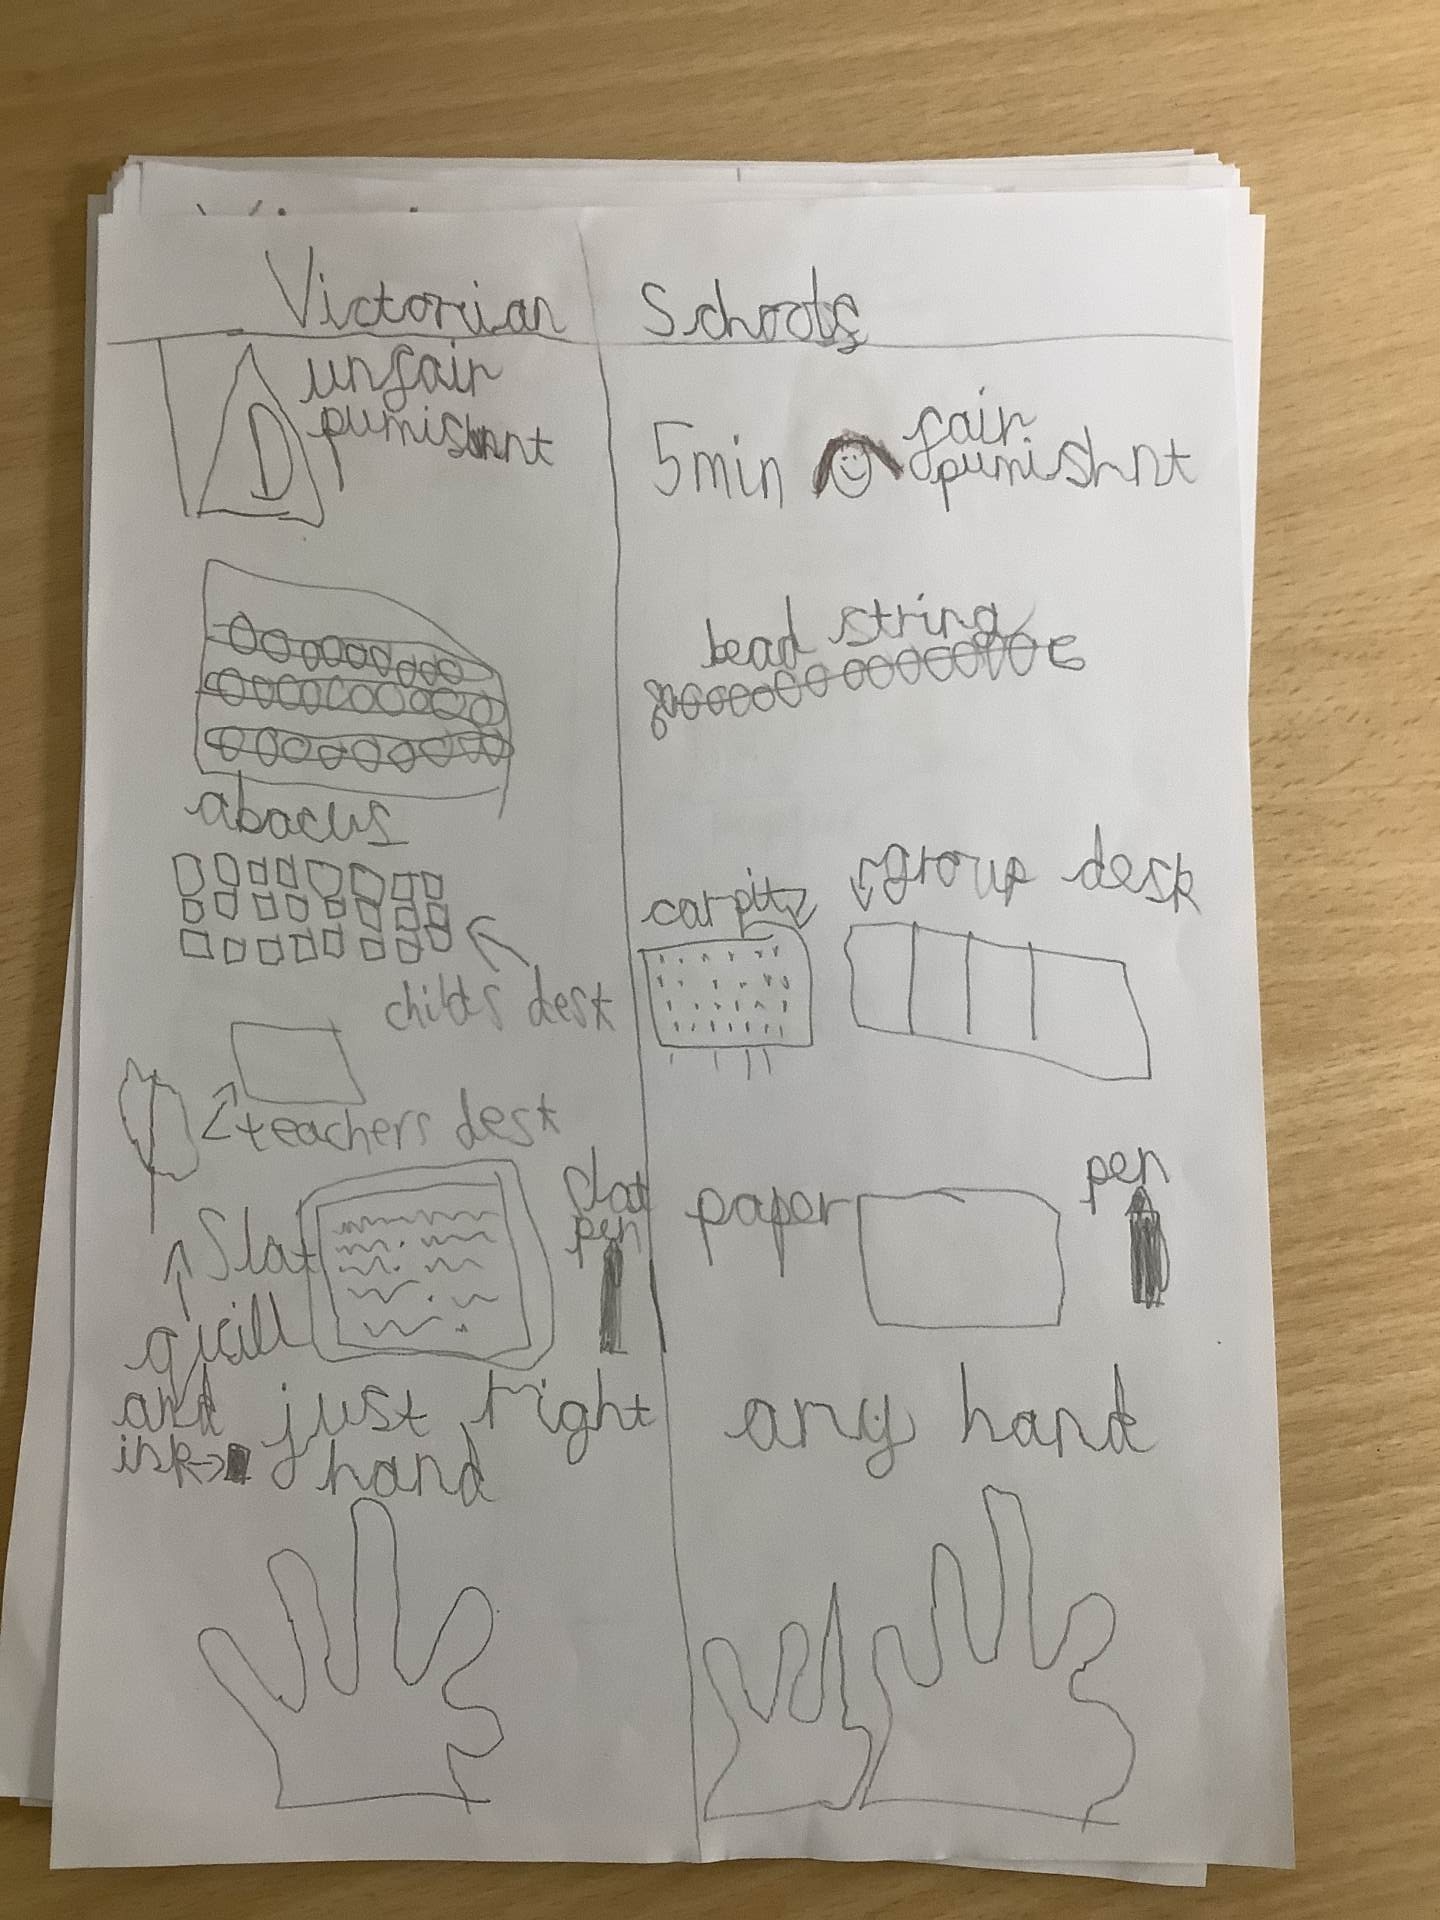 Victorian Schools
D unfair
pumishnnt
5min fair
pumishnt
abacus
bead string
childs desk
teachers desk
carpit group desk
Slat
slat
pen
quill
and
ink
paper pen
just right
hand
any hand